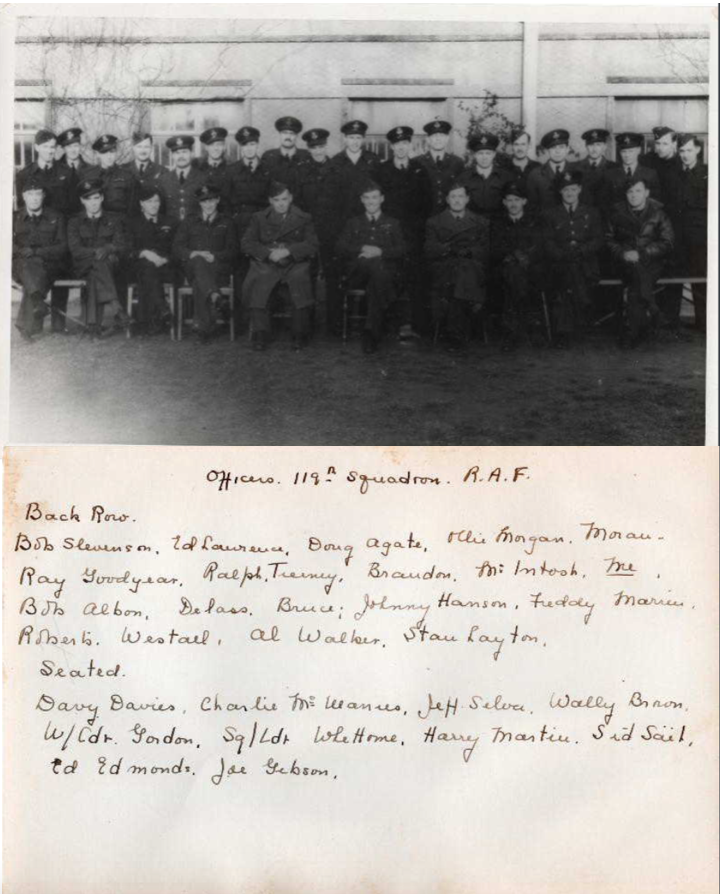 Officers. 119ⁿ Squadron. R.A.F.
Back Row.
Bob Stevenson, Ed Lawrence, Doug Agate, Ollie Morgan, Moran-
Ray Goodyear, Ralph, Tierney, Brandon, Mc Intosh, Me,
Bob Albon, Delass. Bruce; Johnny Hanson, Freddy
Roberts. Westall, Al Walker, Stan Layton,
Seated.
Davy Davies, Charlie Jeff Silva, Wally
W/Cdr. Gordon, Sq/Ldr Harry Martin. Sid
Ed Edmonds, Joe Gibson,